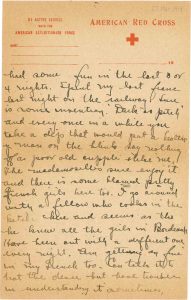 ON ACTIVE SERVICE
WITH THE
AMERICAN EXPEDITIONARY FORCE
AMERICAN RED CROSS
had some fun in the last 3 or
4 nights. Spent my last franc
last night on the railway. Sure
is some invention. Dark as pitch
and every once in a while you
take a dip that would put a
man on the blink day nothing
of a poor old cripple like me.
The mademoiselle sure enjoy it
and there is some French
girls here too. I go around
with a fellow who works in the
hotel here and seems as tho
he knew all the girls in Bordeaux
Have been out with a different one
every night. Am getting
in my French too. Can talk it
but have trouble
in understanding it sometimes.